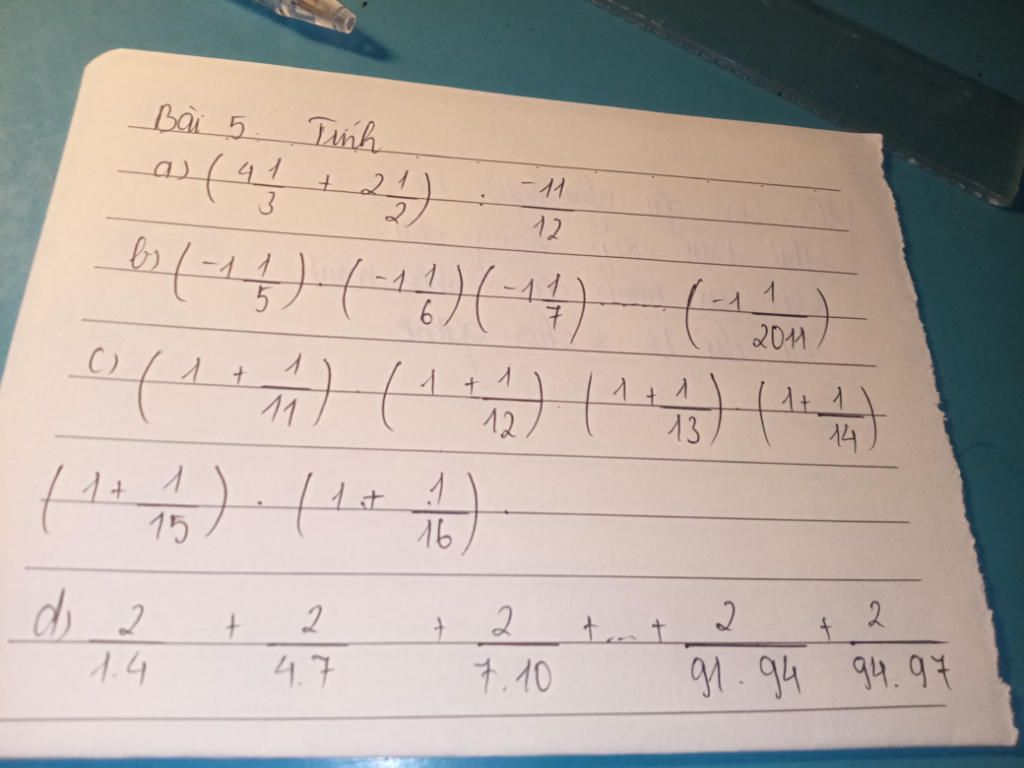 Bài 5. Tính
a) (4 1/3 + 2 1/2) : -11/12
b) (-1 1/5) . (-1 1/6) (-1 1/7) ........ (-1 1/2011)
c) (1 + 1/11) . (1 + 1/12) . (1 + 1/13) . (1 + 1/14)
(1 + 1/15) . (1 + 1/16) .
d) 2/1.4 + 2/4.7 + 2/7.10 + ... + 2/91.94 + 2/94.97